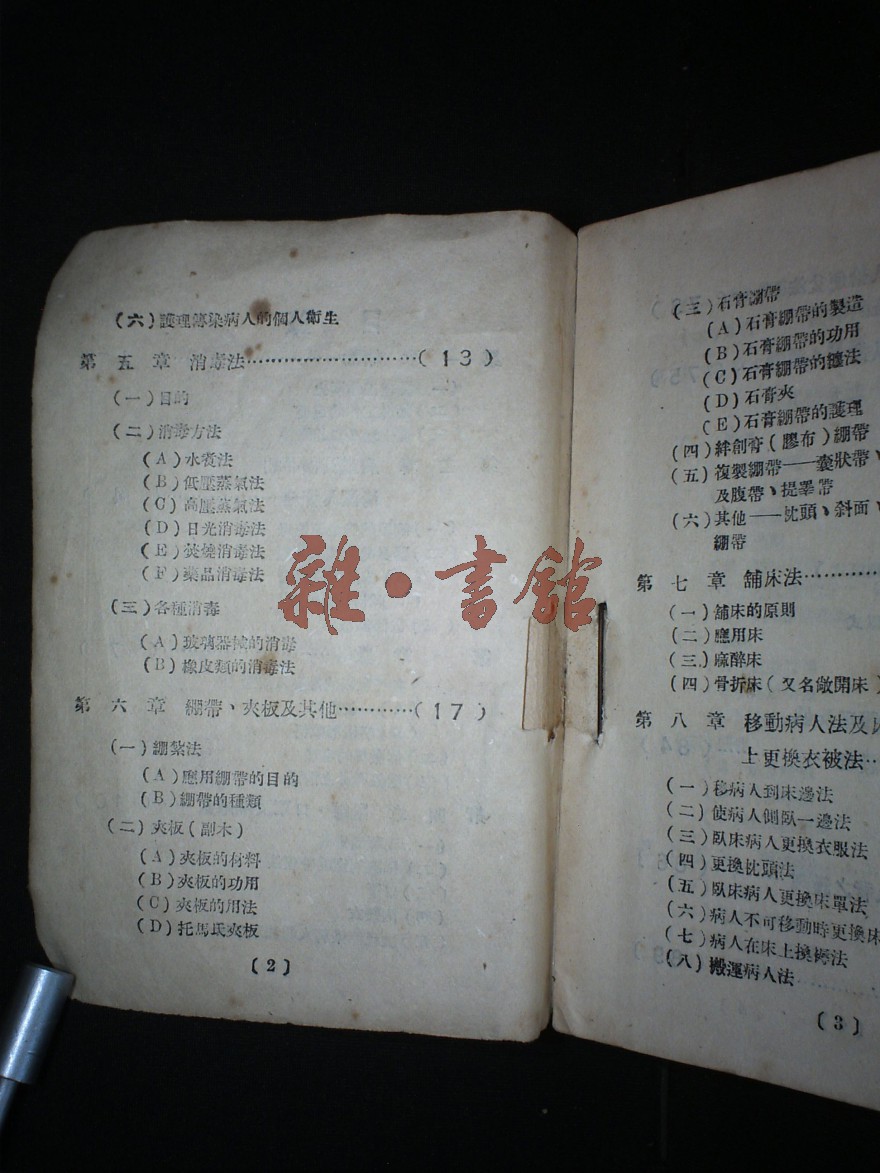 (六)護理傳染病人的個人衛生
第五章 消毒法…………………………(13)
(一)目的
(二)消毒方法
(A)水煮法
(B)低壓蒸氣法
(C)高壓蒸氣法
(D)日光消毒法
(E)焚燒消毒法
(F)藥品消毒法
(三)各種消毒
(A)玻璃器械的消毒
(B)橡皮類的消毒法
第六章 綳帶、夾板及其他…………(17)
(一)綳紮法
(A)應用綳帶的目的
(B)綳帶的種類
(二)夾板(副木)
(A)夾板的材料
(B)夾板的功用
(C)夾板的用法
(D)托馬氏夾板
(2)
(三)石膏綳帶
(A)石膏綳帶的製造
(B)石膏綳帶的功用
(C)石膏綳帶的摣法
(D)石膏夾
(E)石膏綳帶的護理
(四)絆創膏(膠布)綳帶
(五)複製綳帶——囊狀帶、
及腹帶、提睪帶
(六)其他——枕頭、斜面、
綳帶
第七章 舖床法…………
(一)舖床的原則
(二)應用床
(三)麻醉床
(四)骨折床(又名敞開床)
第八章 移動病人法及床
上更換衣被法…
(一)移病人到床邊法
(二)使病人側臥一邊法
(三)臥床病人更換衣服法
(四)更換枕頭法
(五)臥床病人更換床單法
(六)病人不可移動時更換床
(七)病人在床上換褥法
(八)搬運病人法
(3)
雜·書館